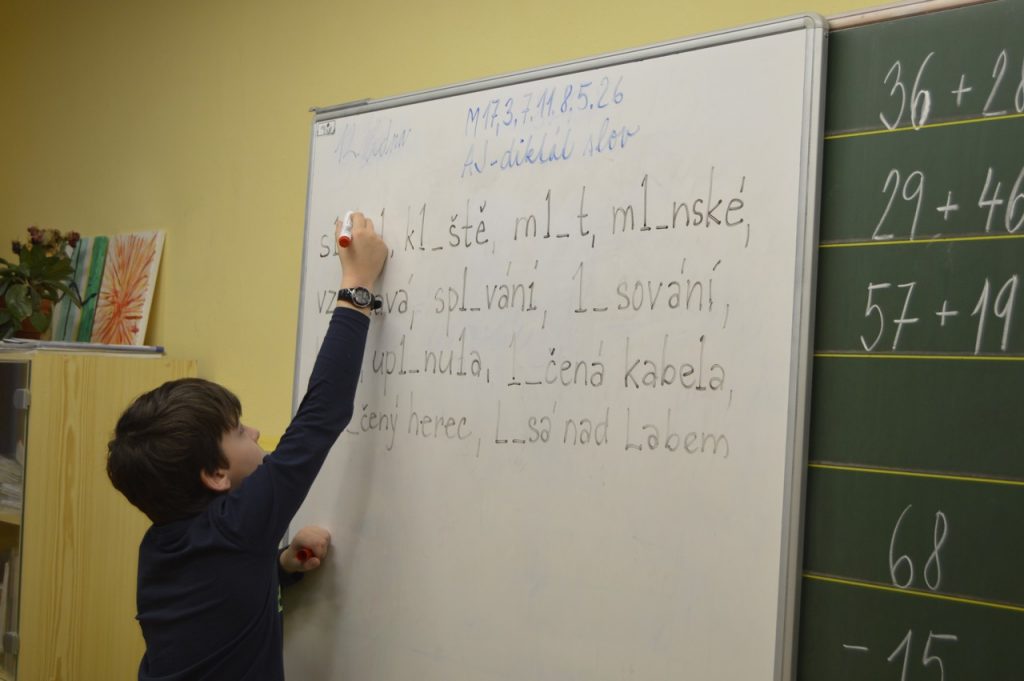 M 17, 3. 7. 11. 8. 5. 26
AJ-diktát slov
kl_ště, ml_t, ml_nské,
spl_vání, l_sování,
upl_nula, l_čená kabela,
_čený herec, L_sá nad Labem
36 + 28
29 + 46
57 + 19
68
- 15